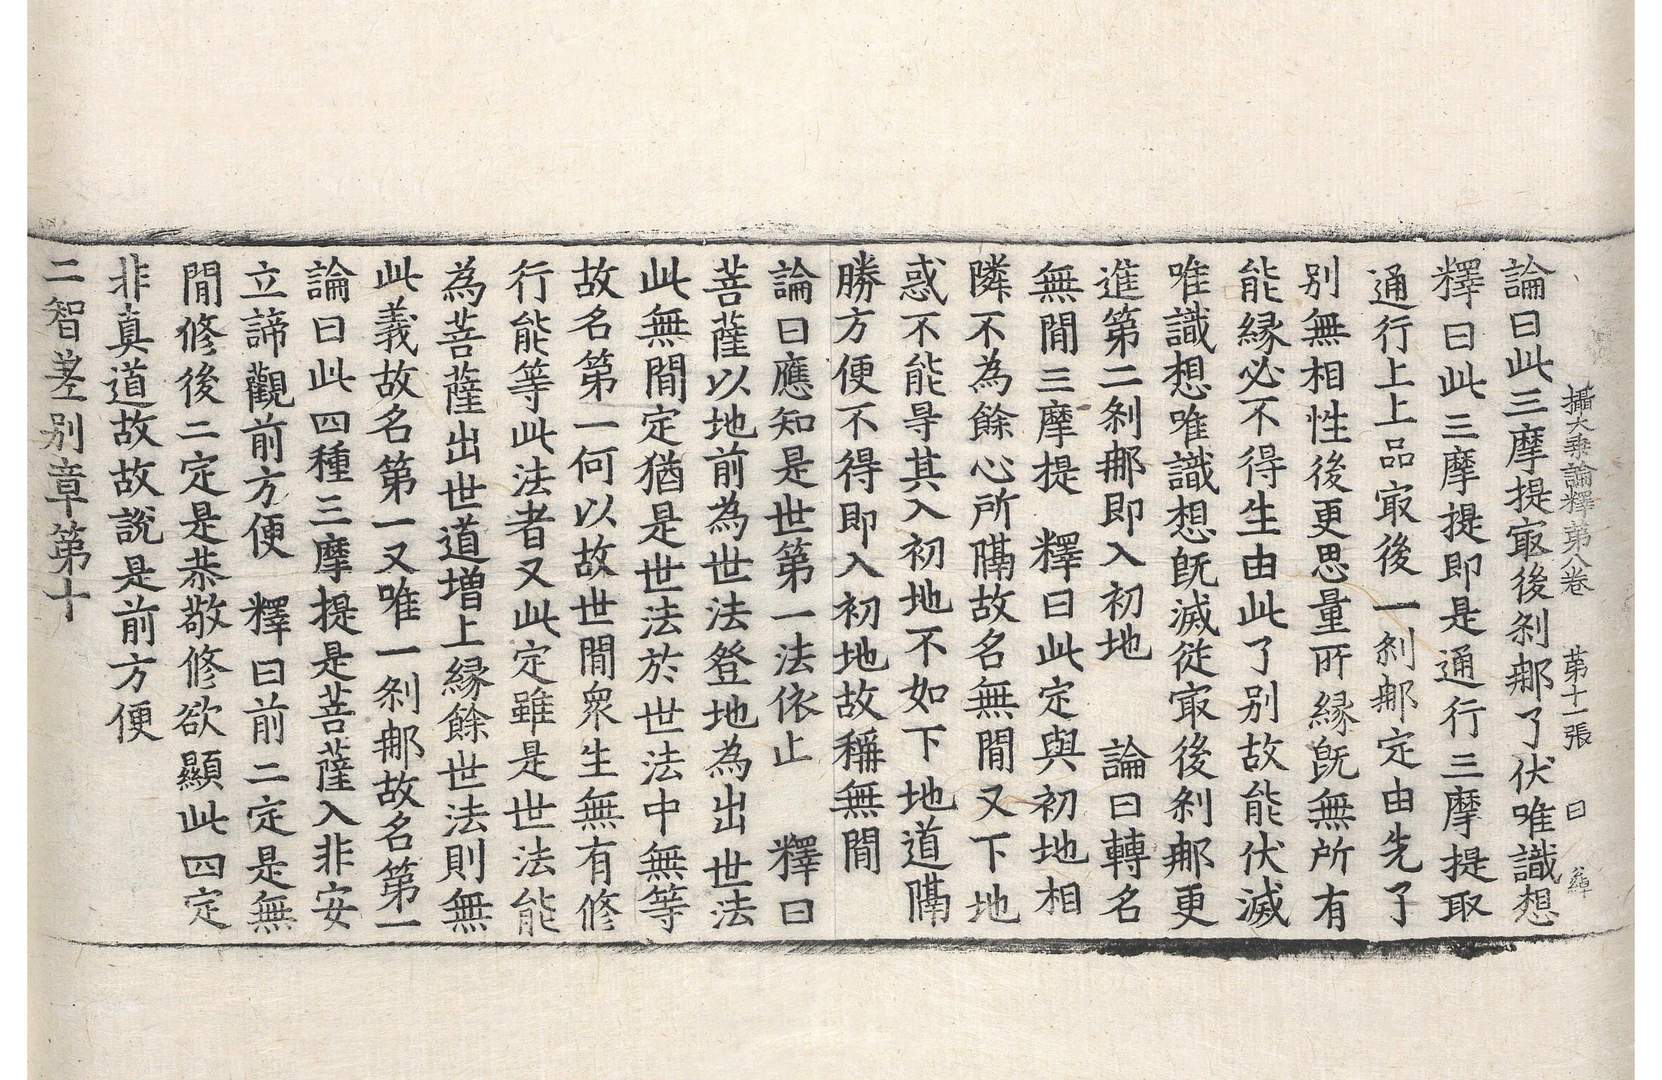 攝大乗論釋第八卷 第十一張 曰
論曰此三摩提㝡後刹那了伏唯識想
釋曰此三摩提即是通行三摩提取
通行上上品㝡後一刹那定由先了
别無相性後更思量所縁旣無所有
能縁必不得生由此了别故能伏滅
唯識想唯識想旣滅從㝡後刹那更
進第二刹那即入初地 論曰轉名
無間三摩提 釋曰此定與初地相
隣不為餘心所隔故名無間又下地
惑不能㝵其入初地不如下地道隔
勝方便不得即入初地故稱無間
論曰應知是世第一法依止 釋曰
菩薩以地前為世法登地為出世法
此無間定猶是世法於世法中無等
故名第一何以故世間衆生無有修
行能等此法者又此定雖是世法能
為菩薩出世道增上縁餘世法則無
此義故名第一又唯一刹那故名第一
論曰此四種三摩提是菩薩入非安
立諦觀前方便 釋曰前二定是無
間修後二定是恭敬修欲顯此四定
非真道故故說是前方便
二智差别章第十